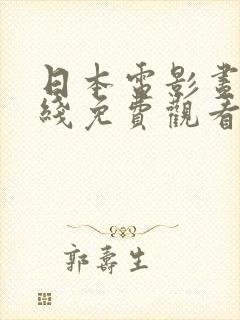 日本電影畫
綫免費觀看
郭壽生